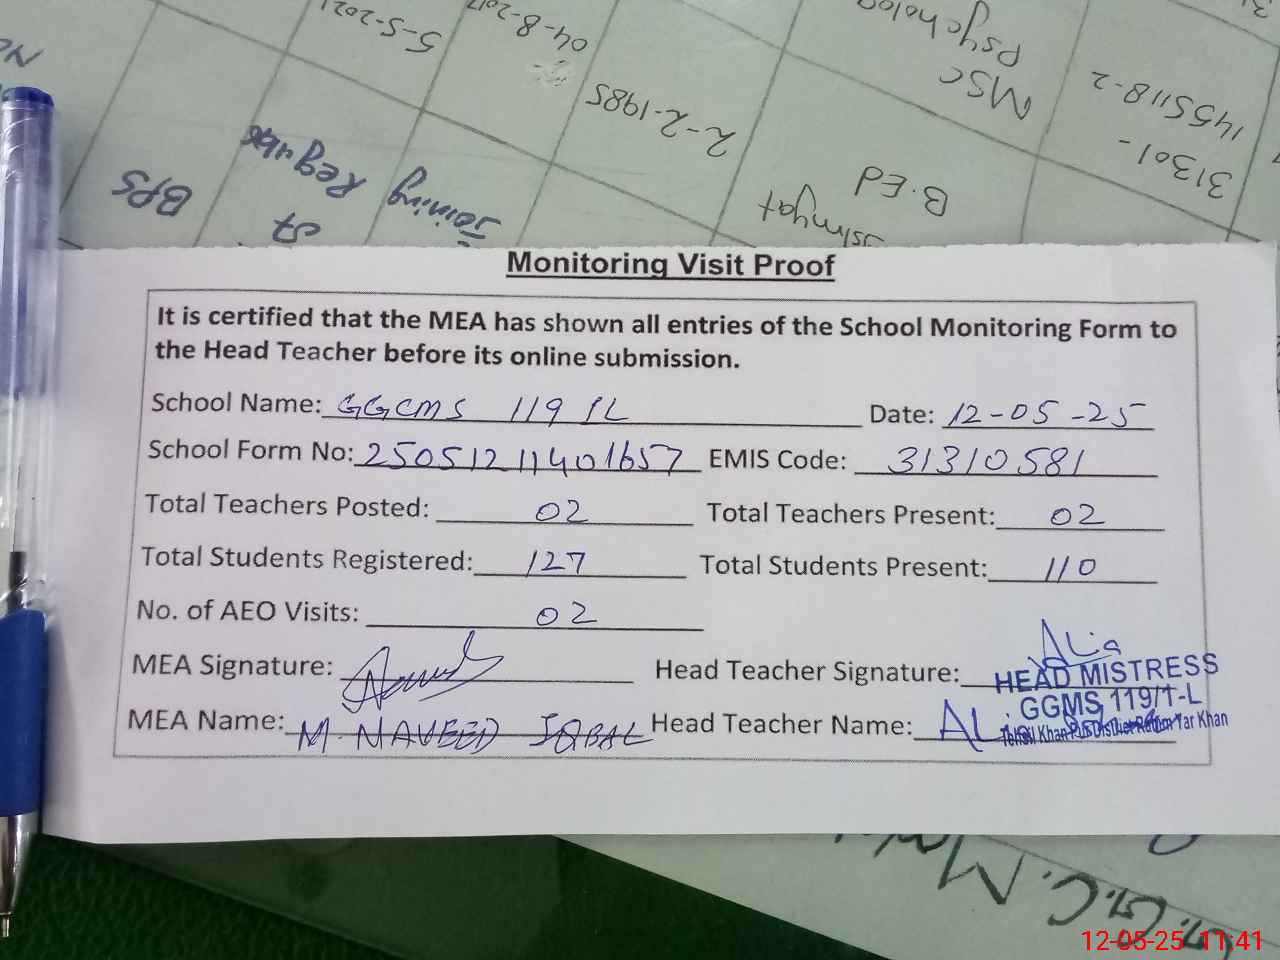 5-5-2021
04-8-2017
2-2-1985
MSC
31301-
1455118-2
B.Ed
BPS
Regular
Joining
Monitoring Visit Proof
It is certified that the MEA has shown all entries of the School Monitoring Form to
the Head Teacher before its online submission.
School Name: GGCMS 119 1L Date: 12-05-25
School Form No: 25051211401657 EMIS Code: 31310581
Total Teachers Posted: 02 Total Teachers Present: 02
Total Students Registered: 127 Total Students Present: 110
No. of AEO Visits: 02
MEA Signature: Head Teacher Signature: Alia
HEAD MISTRESS
GGMS 119/1-L
MEA Name: M NAVEED IQBAL Head Teacher Name:
Tehsil Khan Pur District Rahim Yar Khan
12-05-25 11:41